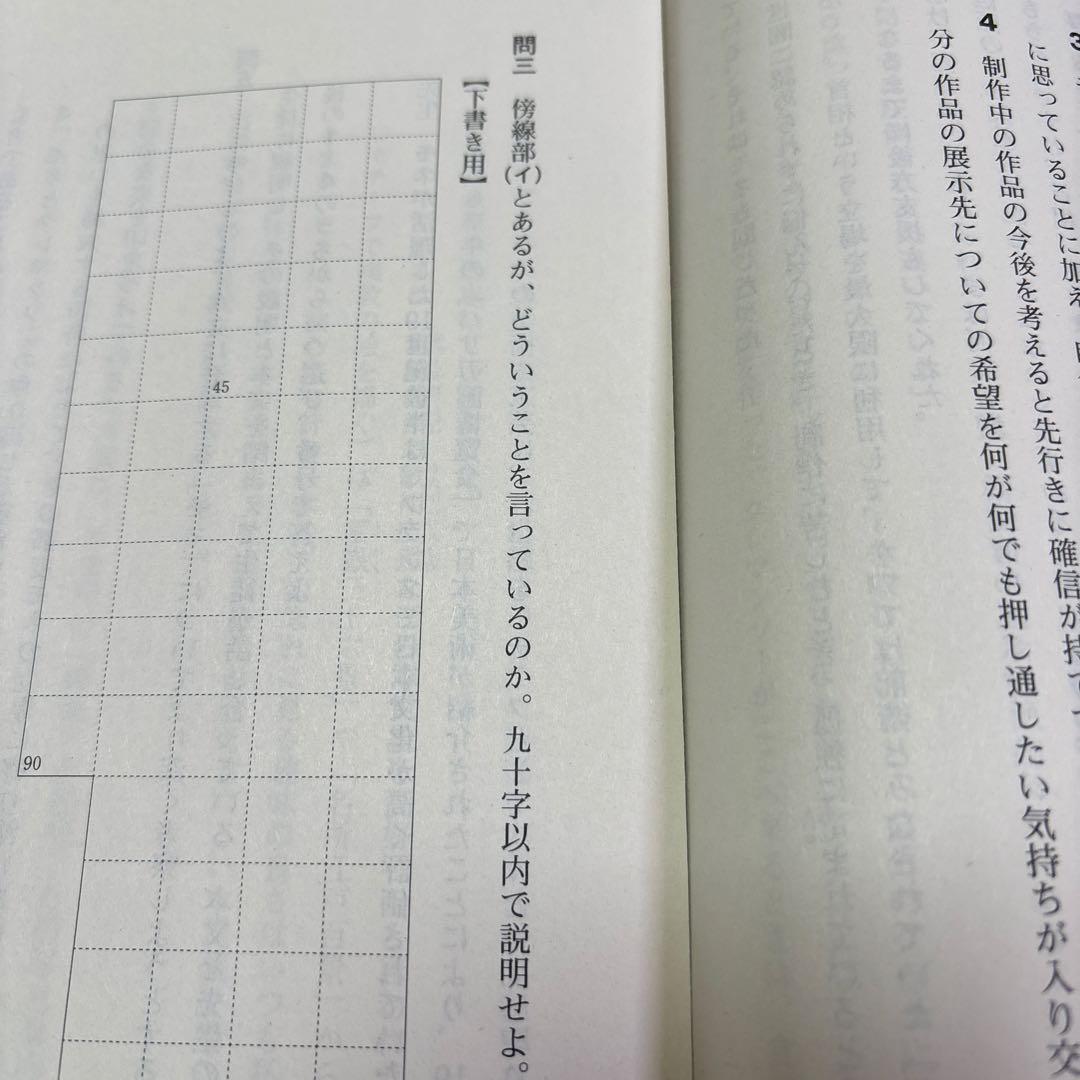 3
に思っていることに加え
4 制作中の作品の今後を考えると先行きに確信が持て
分の作品の展示先についての希望を何が何でも押し通したい気持ちが入り交
問三 傍線部(イ)とあるが、どういうことを言っているのか。九十字以内で説明せよ。
【下書き用】
45
90